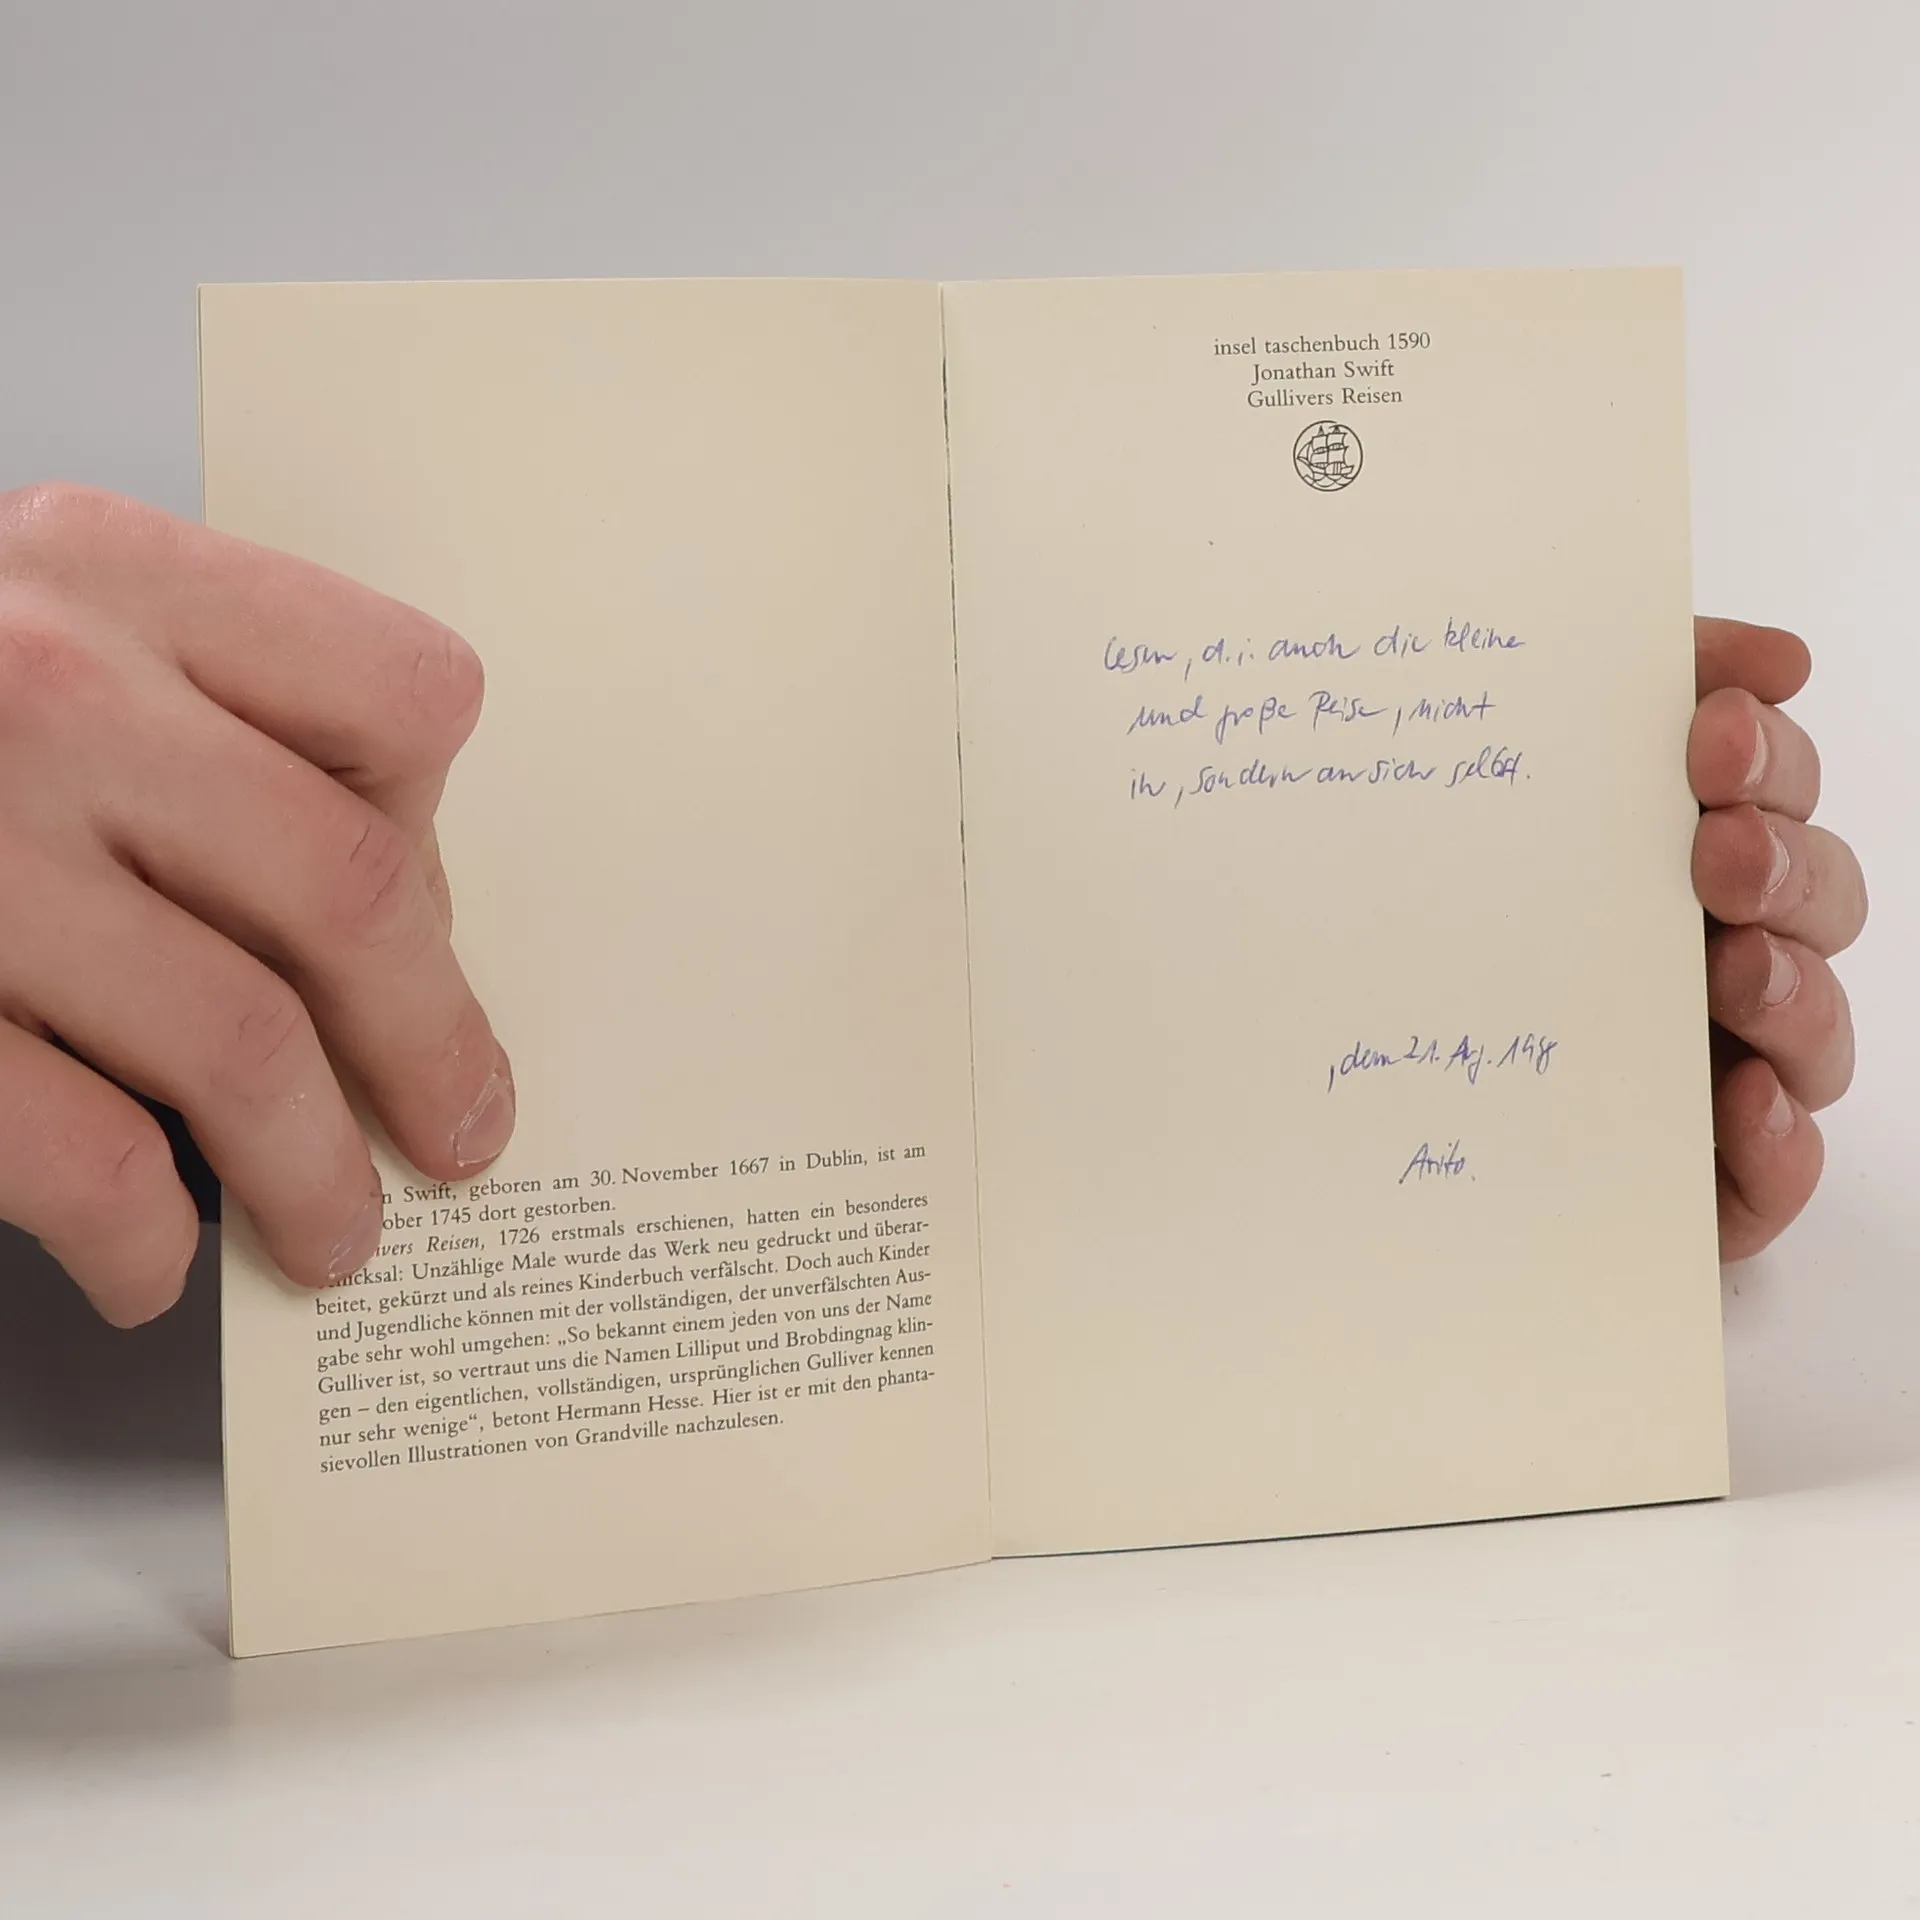 n Swift, geboren am 30. November 1667 in Dublin, ist am
ober 1745 dort gestorben.
ivers Reisen, 1726 erstmals erschienen, hatten ein besonderes
icksal: Unzählige Male wurde das Werk neu gedruckt und überar-
beitet, gekürzt und als reines Kinderbuch verfälscht. Doch auch Kinder
und Jugendliche können mit der vollständigen, der unverfälschten Aus-
gabe sehr wohl umgehen: „So bekannt einem jeden von uns der Name
Gulliver ist, so vertraut uns die Namen Lilliput und Brobdingnag klin-
gen – den eigentlichen, vollständigen, ursprünglichen Gulliver kennen
nur sehr wenige“, betont Hermann Hesse. Hier ist er mit den phanta-
sievollen Illustrationen von Grandville nachzulesen.
insel taschenbuch 1590
Jonathan Swift
Gullivers Reisen
Lesen, d.i. auch die kleine
und große Reise, nicht
in, sondern an sich selbst.
21. Aug.